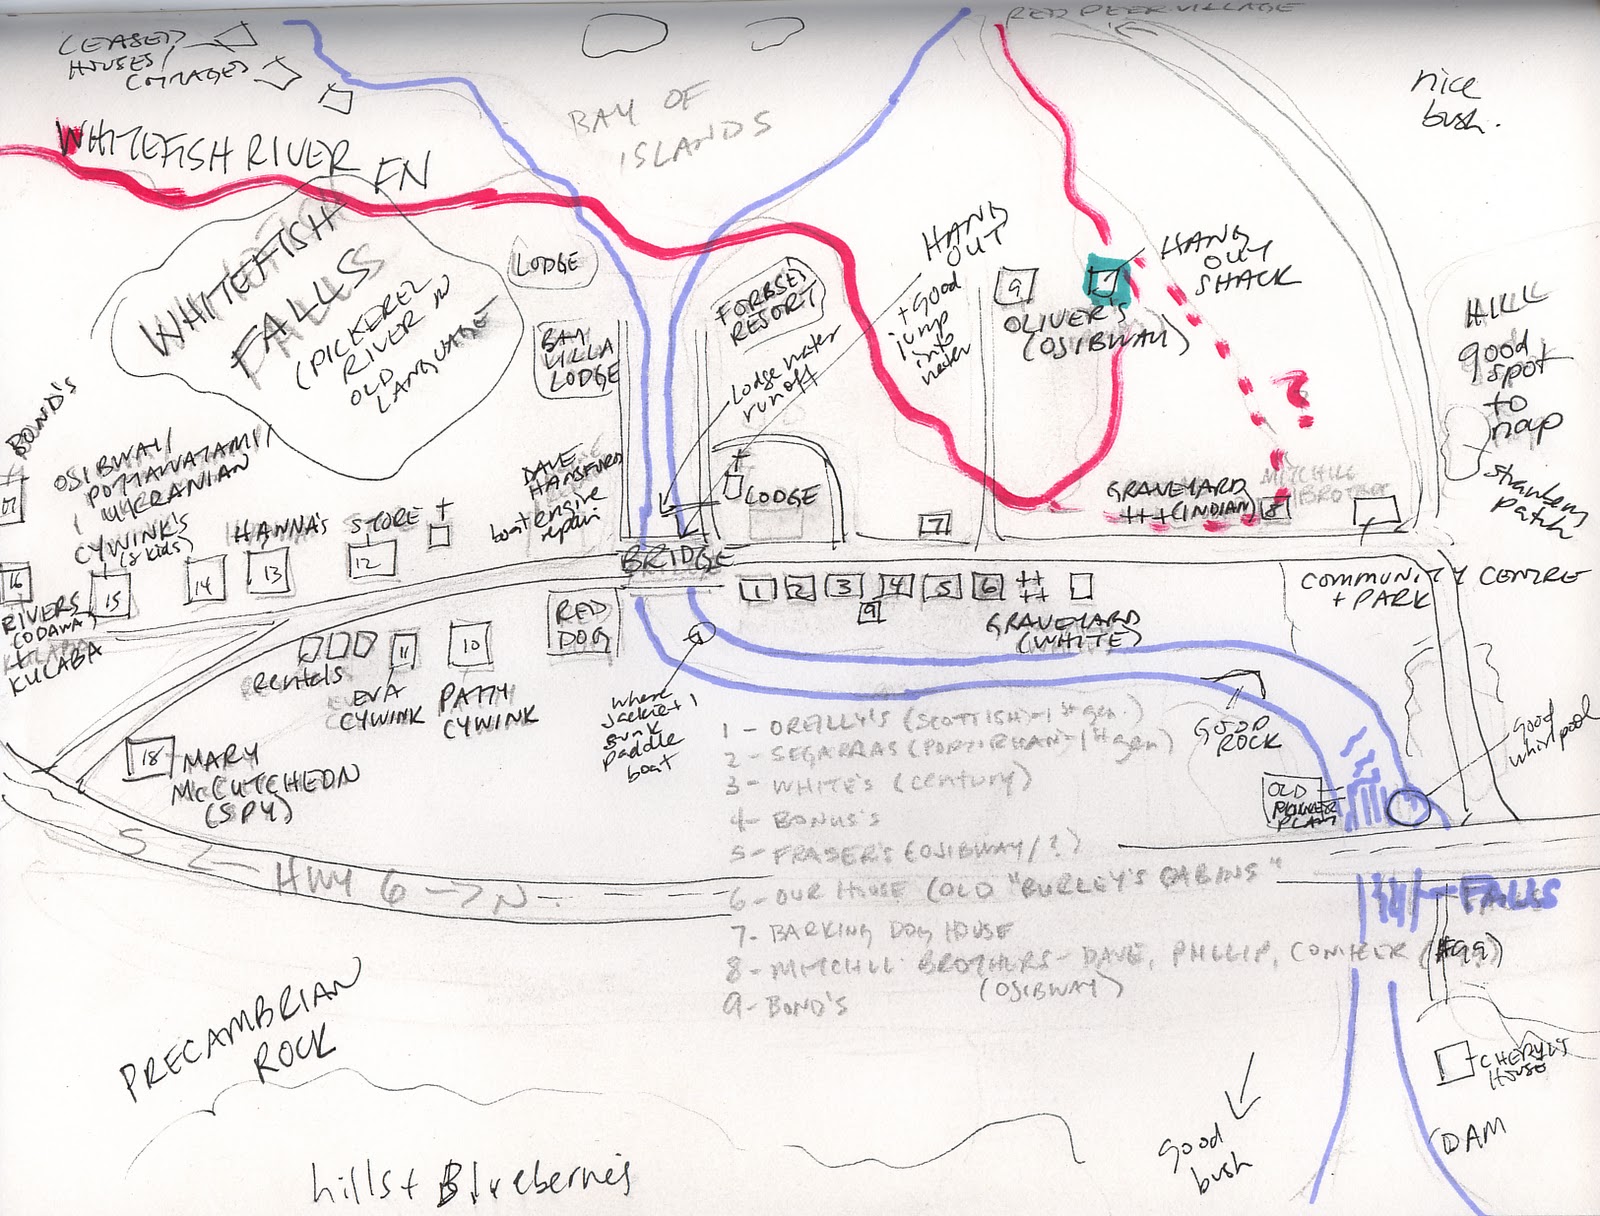 LEASED
HOUSES/
COTTAGES
RED DEER VILLAGE
nice
bush.
BAY OF
ISLANDS
WHITEFISH RIVER FN
WHITEFISH
FALLS
(PICKEREL
RIVER IN
OLD
LANGUAGE
LODGE
BAY
VILLA
LODGE
FORBSES
RESORT
HANG
OUT
+ good
jump
into
water
Lodge water
runoff
9
OLIVER'S
(OJIBWAY)
HANG
OUT
SHACK
?
HILL
good
spot
to
nap
strawberry
patch
BOND'S
17
OJIBWAY/
POTTAWATAMI/
UKRANIAN
CYWINK'S
(8 kids)
HANNA'S
STORE
12
13
14
15
16
RIVERS
(ODAWA)
+
KULABA
DAVE
HANSFORD
boat engine
repair
LODGE
7
GRAVEYARD
+++ (INDIAN)
MITCHILL
BROTHERS
8
BRIDGE
1
2
3
4
5
6
9
GRAVEYARD
(WHITE)
COMMUNITY CENTRE
+ PARK
RED
DOG
rentals
11
EVA
CYWINK
10
PATTY
CYWINK
18
MARY
McCUTCHEON
(SPY)
where
Jackie + I
sunk
paddle
boat
GOOD
ROCK
good
whirlpool
OLD
POWER
PLANT
1 - OREILLY'S (SCOTTISH) - 1st gen.)
2 - SEGARRAS (PORTORICAN - 1st gen)
3 - WHITE'S (century)
4 - BONUS'S
5 - FRASER'S (OJIBWAY/?)
6 - OUR HOUSE (OLD "BURLEY'S CABINS"
7 - BARKING DOG HOUSE
8 - MITCHILL BROTHERS - DAVE, PHILLIP, CONIFER (#99)
(OJIBWAY)
9 - BOND'S
S <- HWY 6 -> N
FALLS
PRECAMBRIAN
ROCK
CHERYL'S
HOUSE
DAM
good
bush
hills + Blueberries